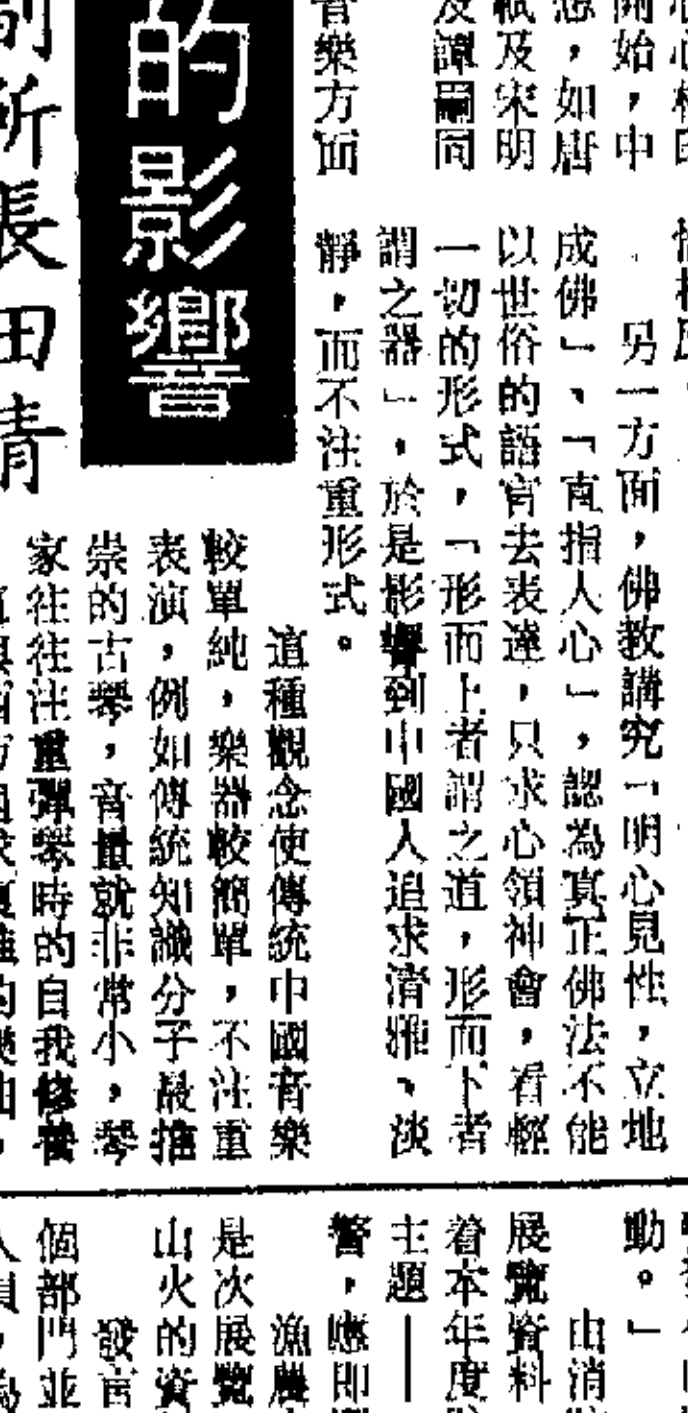 開始，中
想，如唐
紙及宋明
及譚嗣同
音樂方面
另一方面，佛教講究「明心見性，立地
成佛」、「直指人心」，認為真正佛法不能
以世俗的語言去表達，只求心領神會，看輕
一切的形式，「形而上者謂之道，形而下者
謂之器」，於是影響到中國人追求清雅、淡
靜，而不注重形式。
的影響
這種觀念使傳統中國音樂
較單純，樂器較簡單，不注重
表演，例如傳統知識分子最推
崇的古琴，音量就非常小，琴
家往往注重彈琴時的自我修養
所長田青
動。」
由消
展覽資料
着本年度
主題——
警，應即
漁農
是次展覽
山火的資
發言
個部門並